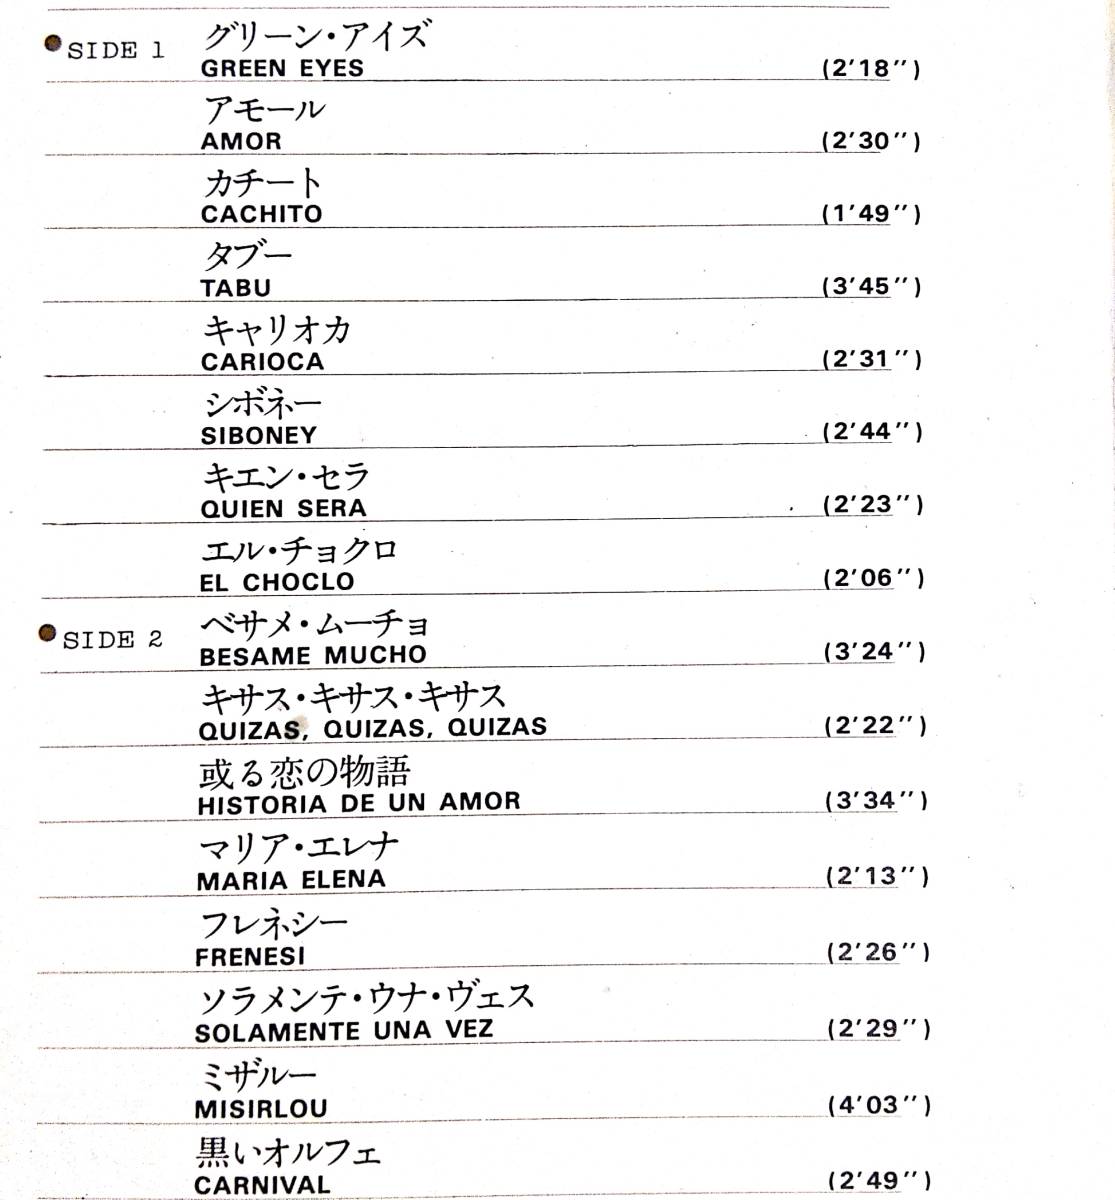 SIDE 1
グリーン・アイズ
GREEN EYES (2'18")
アモール
AMOR (2'30")
カチート
CACHITO (1'49")
タブー
TABU (3'45")
キャリオカ
CARIOCA (2'31")
シボネー
SIBONEY (2'44")
キエン・セラ
QUIEN SERA (2'23")
エル・チョクロ
EL CHOCLO (2'06")
SIDE 2
ベサメ・ムーチョ
BESAME MUCHO (3'24")
キサス・キサス・キサス
QUIZAS, QUIZAS, QUIZAS (2'22")
或る恋の物語
HISTORIA DE UN AMOR (3'34")
マリア・エレナ
MARIA ELENA (2'13")
フレネシー
FRENESI (2'26")
ソラメンテ・ウナ・ヴェス
SOLAMENTE UNA VEZ (2'29")
ミザルー
MISIRLOU (4'03")
黒いオルフェ
CARNIVAL (2'49")